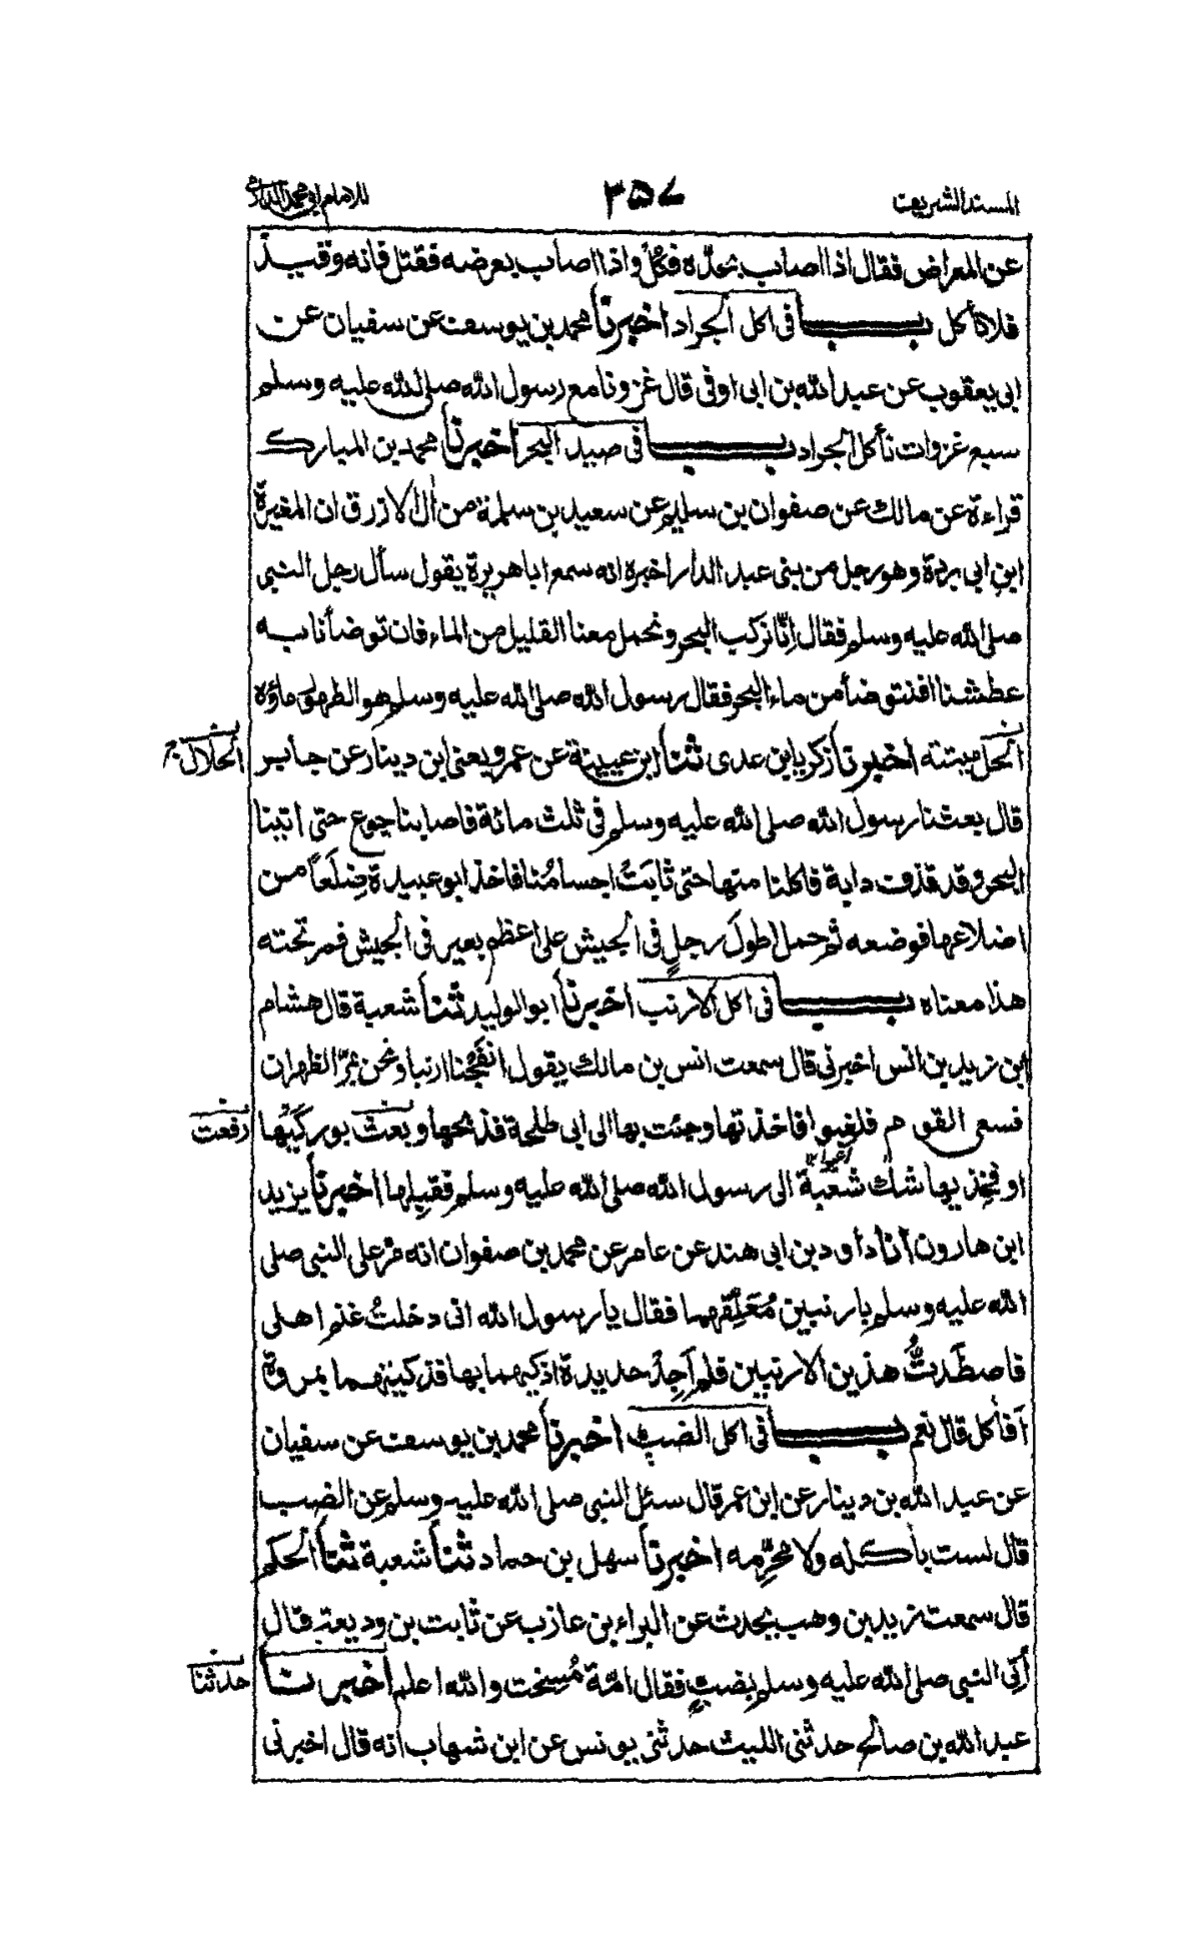 المسند الشريف ٣٥٧ للامام ابي محمد الدارمي
عن المعراض فقال اذا اصاب بحدّه فكُلْ واذا اصاب بعرضه فقتل فانه وقيذ
فلا تأكل باب فى اكل الجراد اخبرنا محمد بن يوسف عن سفيان عن
ابى يعقوب عن عبد الله بن ابى اوفى قال غزونا مع رسول الله صلى الله عليه وسلم
سبع غزوات نأكل الجراد باب فى صيد البحر اخبرنا محمد بن المبارك
قراءة عن مالك عن صفوان بن سليم عن سعيد بن سلمة من اٰل الازرق ان المغيرة
ابن ابى بردة وهو رجل من بنى عبد الدار اخبره انه سمع ابا هريرة يقول سأل رجل النبى
صلى الله عليه وسلم فقال اِنّا نركب البحر ونحمل معنا القليل من الماء فان توضأنا به
عطشنا افنتوضأ من ماء البحر فقال رسول الله صلى الله عليه وسلم هو الطهور ماؤه
الحل ميتته اخبرنا زكريا بن عدى ثنا ابن عيينة عن عمرو يعنى ابن دينار عن جابر
الحلال
قال بعثنا رسول الله صلى الله عليه وسلم فى ثلث مائة فاصابنا جوع حتى اتينا
البحر وقد قذف دابة فاكلنا منها حتى ثابَتْ اجسامُنا فاخذ ابو عبيدة ضِلَعاً من
اضلاعها فوضعه ثم حمل اطولَ رجلٍ فى الجيش على اعظم بعير فى الجيش فمر تحته
هذا معناه باب فى اكل الارنب اخبرنا ابو الوليد ثنا شعبة قال هشام
ابن زيد بن انس اخبرنى قال سمعت انس بن مالك يقول انفَجْنا ارنبا ونحن بمَرِّ الظهران
فسعى القوم فلغبوا فاخذتها وجئت بها الى ابى طلحة فذبحها وبعث بوركَيْها
اعيوا
رفعت
او فخِذيها شك شعبة الى رسول الله صلى الله عليه وسلم فقبِلها اخبرنا يزيد
ابن هارون انا دأود بن ابى هند عن عامر عن محمد بن صفوان انه مرّ على النبى صلى
الله عليه وسلم بارنبين مُعَلِّقهما فقال يا رسول الله انى دخلتُ غنم اهلى
فاصطَدتُّ هذين الارنبين فلم اَجِدْ حديدة اذكيهما بها فذكيتهما بمروة
اَفاٰكل قال نعم باب فى اكل الضب اخبرنا محمد بن يوسف عن سفيان
عن عبد الله بن دينار عن ابن عمر قال سئل النبى صلى الله عليه وسلم عن الضب
قال لست باٰكله ولا محرِّمه اخبرنا سهل بن حماد ثنا شعبة ثنا الحكم
قال سمعت زيد بن وهب يحدث عن البراء بن عازب عن ثابت بن وديعة قال
أتى النبى صلى الله عليه وسلم بضب فقال امّة مُسخت والله اعلم اخبرنا
حدثنا
عبد الله بن صالح حدثنى الليث حدثنى يونس عن ابن شهاب أنه قال اخبرنى